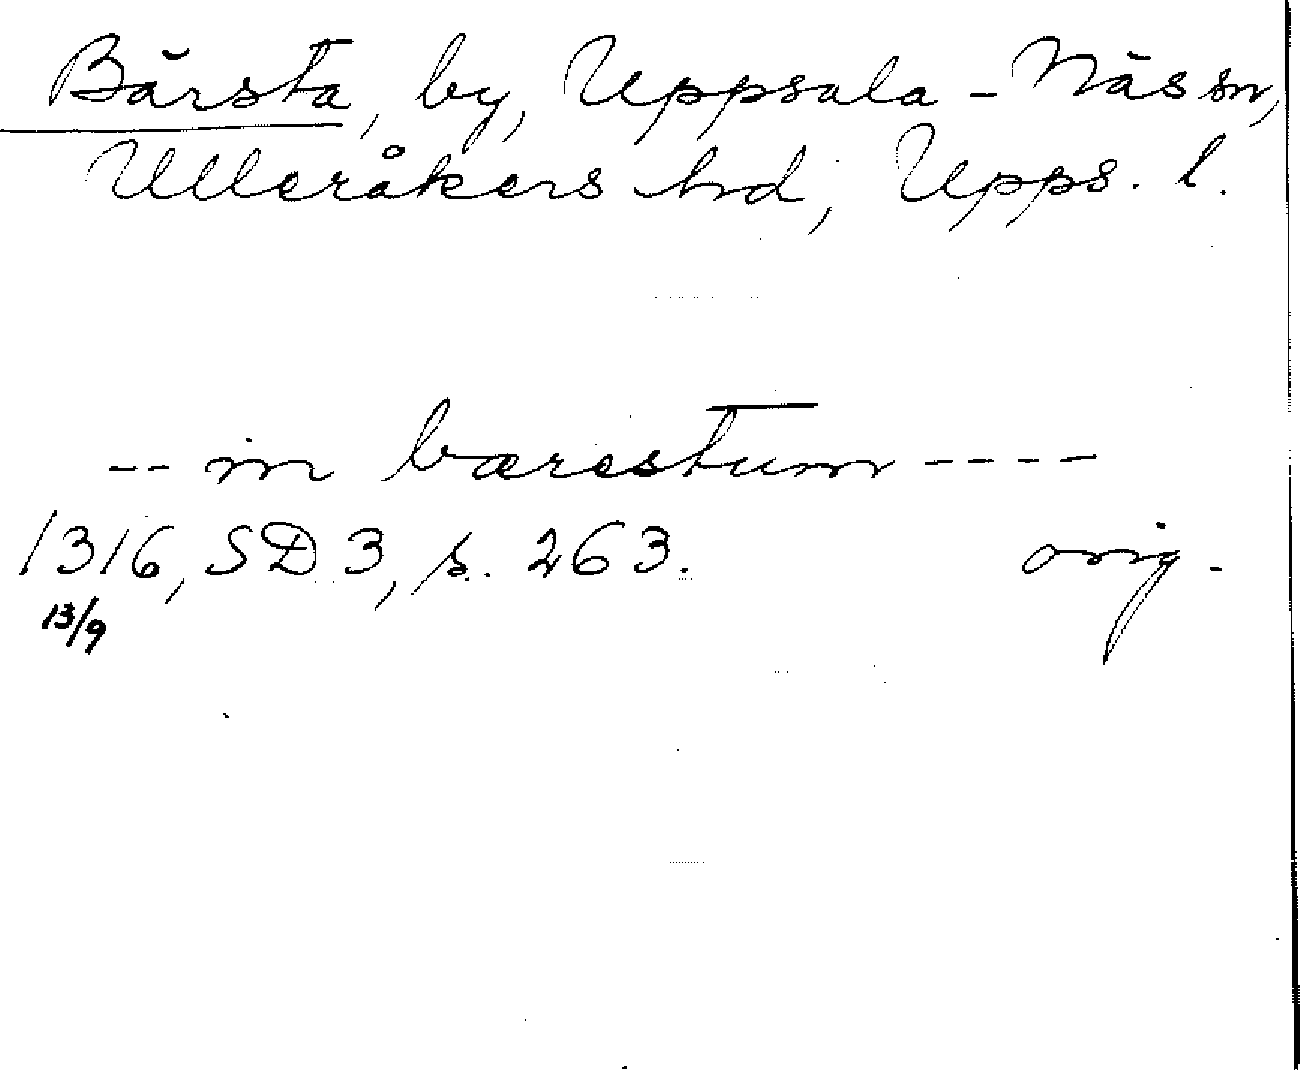 Bärsta, by, Uppsala-Näs sn,
Ulleråkers hd, Upps. l.
-- in bærestum ----
1316, SD 3, s. 263. orig.
13/9